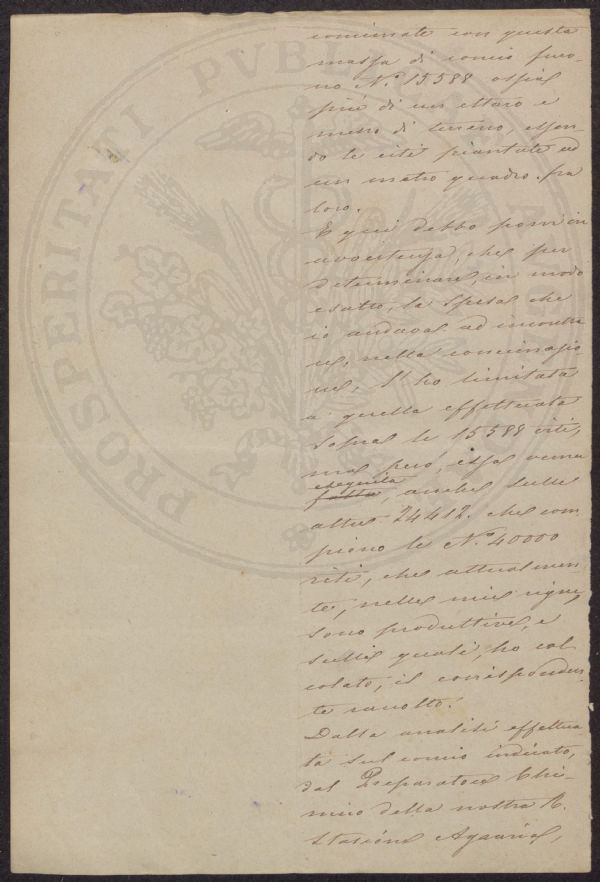 PROSPERITATI PVBLICAE
concimate con questa
massa di concio furo-
no N.º 15588 ossia
più di un ettaro e
mezzo di terreno, essen-
do le viti piantate ad
un metro quadro fra
loro.
E qui debbo porre in
avvertenza, che per
determinare, in modo
esatto, la spesa che
io andava ad incontra
re, nella concimazio-
ne, l'ho limitata
a quella effettuata
sopra le 15588 viti,
ma però, essa venne
eseguita
fatta, anche sulle
altre 24412. che com
piono le N.º 40000
viti, che attualmen
te, nelle mie vigne,
sono produttive, e
sulle quali, ho cal
colato, il corrisponden-
te raccolto.
Dalla analisi effettua
ta sul concio indicato,
dal Preparatore Chi-
mico della nostra R.
Stazione Agraria,